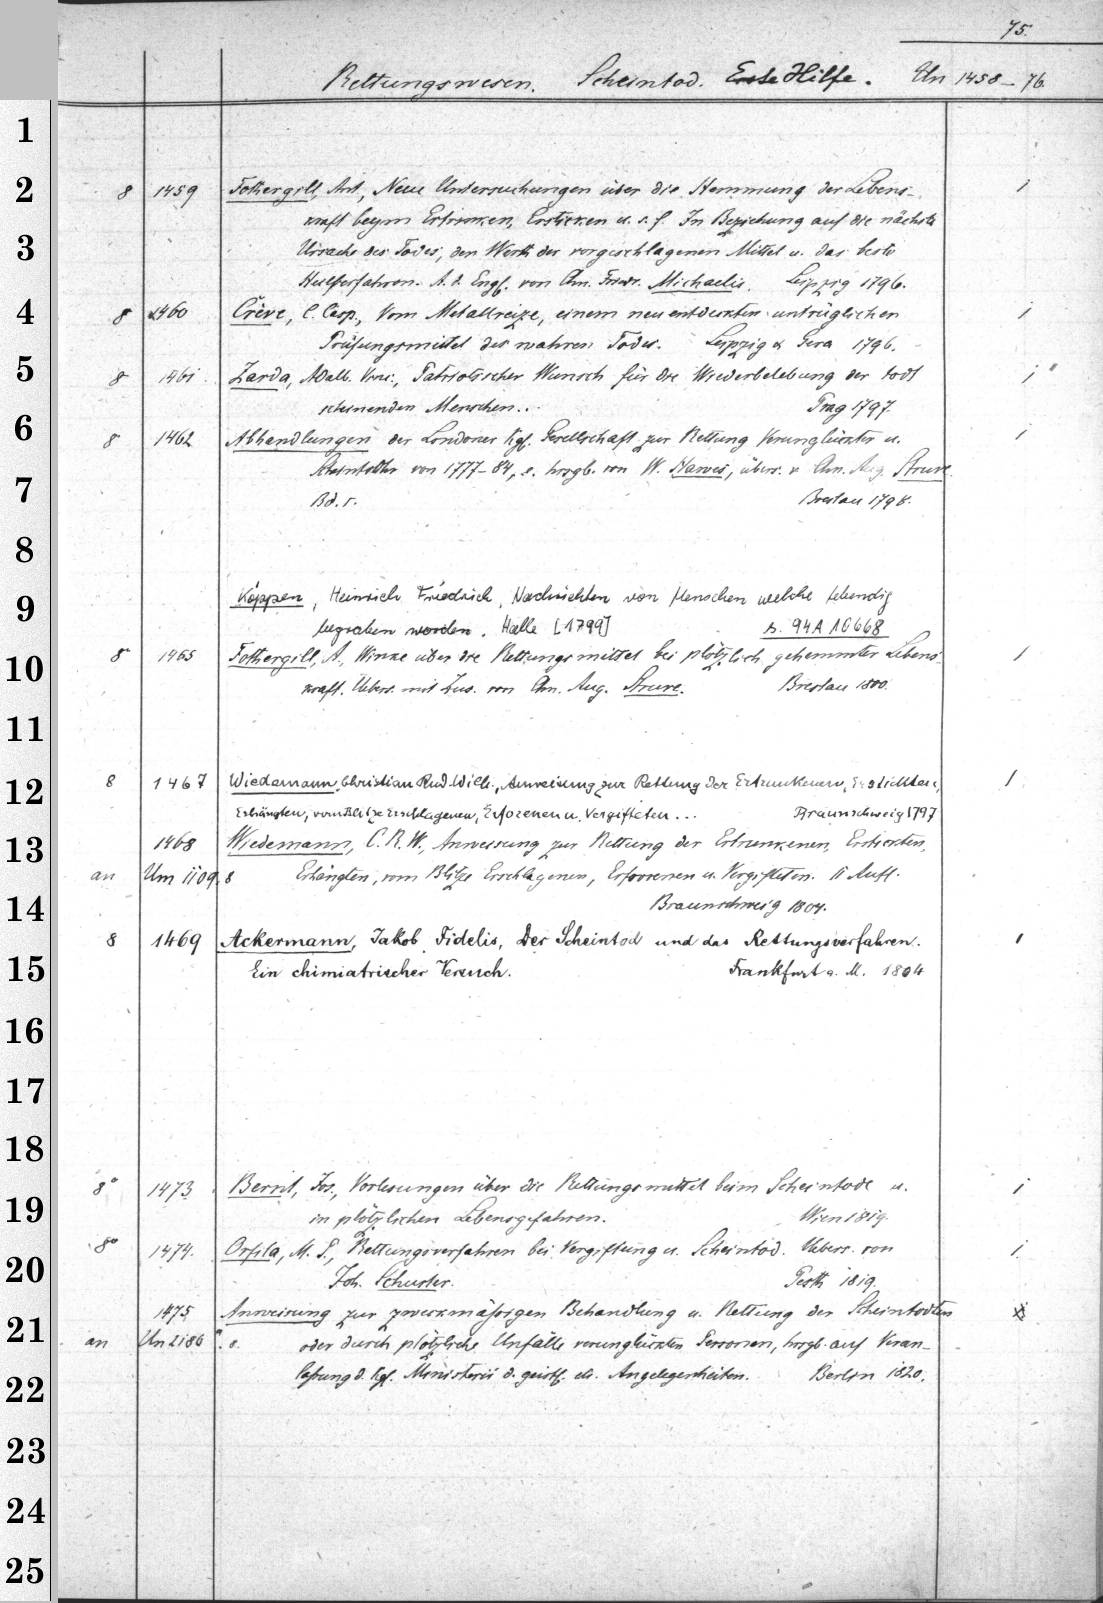 75.
Rettungswesen. Scheintod. Erste Hilfe. Un 1458-76.
1
2 8 1459 Fothergill, Ant., Neue Untersuchungen über die Hemmung der Lebens-
kraft beym Ertrinken, Ersticken u. s. f. In Beziehung auf die nächste
3 Ursache des Todes, den Werth der vorgeschlagenen Mittel u. das beste
Heilverfahren. A. d. Engl. von Chn. Friedr. Michaelis. Leipzig 1796. 1
4 8 1460 Crève, C. Casp., Vom Metallreize, einem neuentdeckten untrüglichen 1
Prüfungsmittel des wahren Todes. Leipzig & Gera 1796.
5 8 1461. Zarda, Adalb. Vinc., Patriotischer Wunsch für die Wiederbelebung der todt 1
scheinenden Menschen... Prag 1797.
6 8 1462 Abhandlungen der Londoner Kgl. Gesellschaft zur Rettung Verunglückter u. 1
Scheintodter von 1777-84, hrsgb. von W. Hawes, übers. v. Chn. Aug. Struve.
7 Bd. 1. Breslau 1798.
8
9 Köppen, Heinrich Friedrich, Nachrichten von Menschen welche lebendig
begraben worden. Halle [1799] s. 94 A 10668
10 8 1465 Fothergill, A., Winke über die Rettungsmittel bei plötzlich gehemmter Lebens- 1
kraft. Uebers. mit Zus. von Chn. Aug. Struve. Breslau 1800.
11
12 8 1467 Wiedemann, Christian Rud. Wilh., Anweisung zur Rettung der Ertrunkenen, Erstickten, 1
Erhängten, vom Blitze Erschlagenen, Erfrorenen u. Vergifteten... Braunschweig 1797
13 1468 Wiedemann, C. R. W., Anweisung zur Rettung der Ertrunkenen, Erstickten,
an Um 1109. 8 Erhängten, vom Blitze Erschlagenen, Erfrorenen u. Vergifteten. II Aufl.
14 Braunschweig 1804.
8 1469 Ackermann, Jakob Fidelis, Der Scheintod und das Rettungsverfahren. 1
15 Ein chimiatrischer Versuch. Frankfurt a. M. 1804
16
17
18
8° 1473 Bernt, Jos., Vorlesungen über die Rettungsmittel beim Scheintode u. 1
19 in plötzlichen Lebensgefahren. Wien 1819.
8° 1474. Orfila, M. P., Rettungsverfahren bei Vergiftung u. Scheintod. Uebers. von 1.
20 Joh. Schuster. Pesth 1819.
1475 Anweisung zur zweckmässigen Behandlung u. Rettung der Scheintodten
21 an Un 2186 8. oder durch plötzliche Unfälle verunglückten Personen, hrsgb. auf Veran-
22 lassung d. Kgl. Ministerii d. geistl. etc. Angelegenheiten. Berlin 1820.
23
24
25